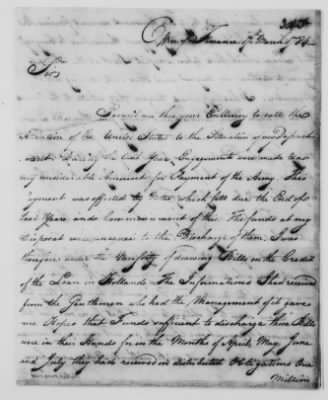 Office of Finance 17th March 1784
Sir
Permit me thro your Excellency to call the
Attention of the United States to the Situation of my Depart
ment. Directly the last Year Engagements were made to a
very considerable Amount for Payment of the Army. This
Payment was effected by Notes which fell due the End of
last Year and Commencement of this. The funds at my
Disposal were unequal to the Discharge of them. I was
therefore under the Necessity of drawing Bills on the Credit
of the Loan in Holland. The Informations I had received
from the Gentlemen who had the Management of it gave
me Hopes that Funds sufficient to discharge these Bills
were in their Hands for in the Months of April May June
and July they had received on distributed Obligations One
Million